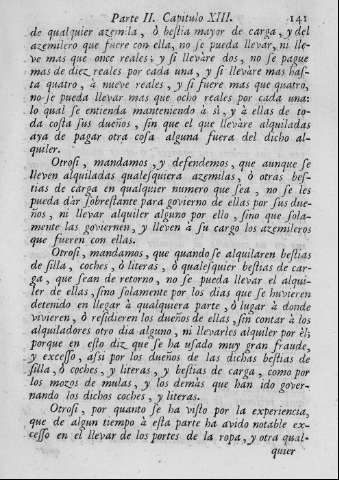 Parte II. Capitulo XIII. 141
de qualquier azemila, ò bestia mayor de carga, y del
azemilero que fuere con ella, no se pueda llevar, ni lle-
ve mas que once reales; y si llevàre dos, no se pague
mas de diez reales por cada una, y si llevàre mas has-
ta quatro, à nueve reales, y si fuere mas que quatro,
no se pueda llevar mas que ocho reales por cada una:
lo qual se entienda manteniendo à sì, y à ellas de to-
da costa sus dueños, sin que el que llevàre alquiladas
aya de pagar otra cosa alguna fuera del dicho al-
quiler.
Otrosi, mandamos, y defendemos, que aunque se
lleven alquiladas qualesquiera azemilas, ò otras bes-
tias de carga en qualquier numero que sea, no se les
pueda dàr sobrestante para govierno de ellas por sus due-
ños, ni llevar alquiler alguno por ello, sino que sola-
mente las goviernen, y lleven à su cargo los azemileros
que fueren con ellas.
Otrosi, mandamos, que quando se alquilaren bestias
de silla, coches, ò literas, ò qualesquier bestias de car-
ga, que sean de retorno, no se pueda llevar el alqui-
ler de ellas, sino solamente por los dias que se huvieren
detenido en llegar à qualquiera parte, ò lugar à donde
vivieren, ò residieren los dueños de ellas, sin contar à los
alquiladores otro dia alguno, ni llevarles alquiler por èl;
porque en esto diz que se ha usado muy gran fraude,
y excesso, assi por los dueños de las dichas bestias de
silla, ò coches, y literas, y bestias de carga, como por
los mozos de mulas, y los demàs que han ido gover-
nando los dichos coches, y literas.
Otrosi, por quanto se ha visto por la experiencia,
que de algun tiempo à esta parte ha avido notable ex-
cesso en el llevar de los portes de la ropa, y otra qual-
quier